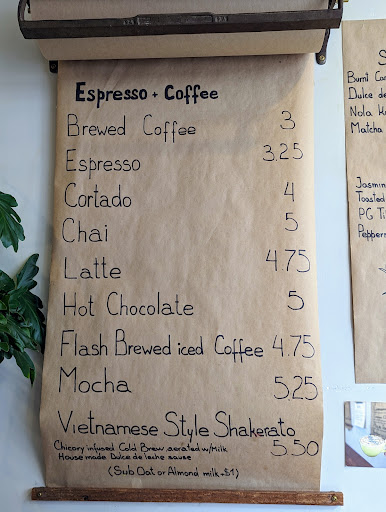 Espresso + Coffee
Brewed Coffee 3
Espresso 3.25
Cortado 4
Chai 5
Latte 4.75
Hot Chocolate 5
Flash Brewed iced Coffee 4.75
Mocha 5.25
Vietnamese Style Shakerato 5.50
Chicory infused Cold Brew aerated w/Milk
House made Dulce de leche sause
(Sub Oat or Almond milk +$1)
S
Burnt
Dulce de
Nola
Matcha
Toasted
PG